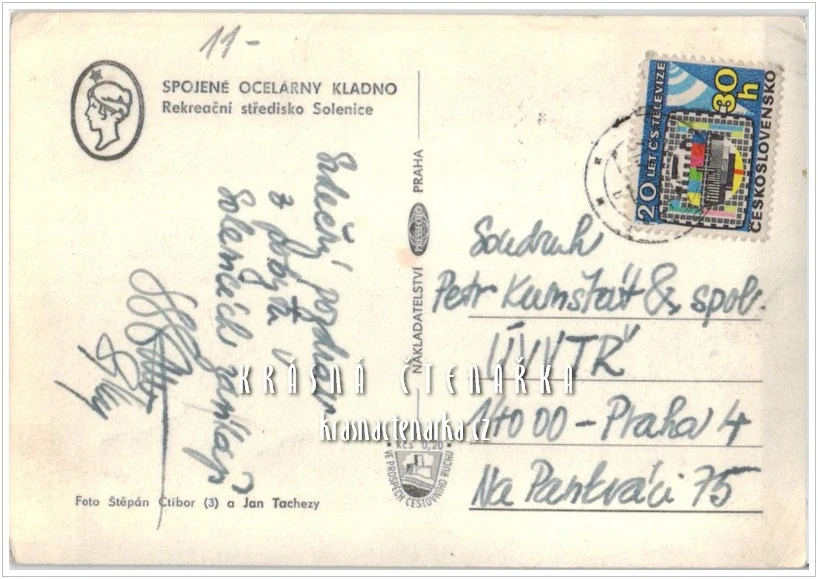 11-
SPOJENÉ OCELÁRNY KLADNO
Rekreační středisko Solenice
Srdečný pozdrav
z pobytu v
Solenicích zasílají
Foto Štěpán Ctibor (3) a Jan Tachezy
NAKLADATELSTVÍ PRESSFOTO PRAHA
Kčs 0,20
VE PROSPĚCH CESTOVNÍHO RUCHU
20 LET ČS TELEVIZE
30h
ČESKOSLOVENSKO
Soudruh
Petr Kumštát & spol.
ÚVVTŘ
140 00 - Praha 4
Na Pankráci 75
KRÁSNÁ ČTENÁŘKA
krasnactenarka.cz